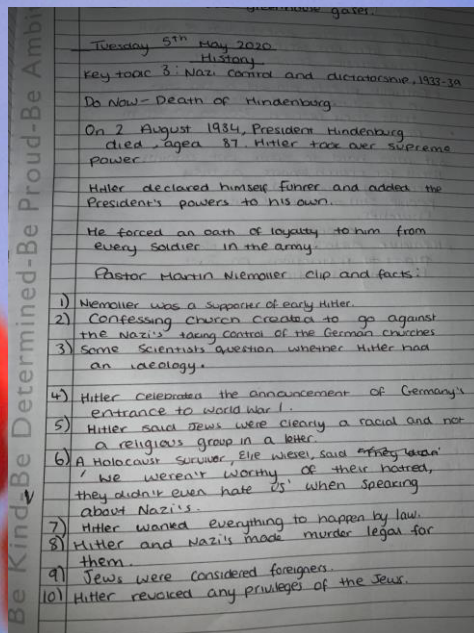 greenhouse gases.
Tuesday 5th May 2020
History
Key topic 3: Nazi control and dictatorship, 1933-39
Do Now - Death of Hindenburg.
On 2 August 1934, President Hindenburg
died, aged 87. Hitler took over supreme
power.
Hitler declared himself Fuhrer and added the
President's powers to his own.
He forced an oath of loyalty to him from
every soldier in the army.
Pastor Martin Niemoller clip and facts:
1) Niemoller was a supporter of early Hitler.
2) Confessing church created to go against
the Nazi's taking control of the German churches
3) Some scientists question whether Hitler had
an ideology.
4) Hitler celebrated the announcement of Germany's
entrance to World War 1.
5) Hitler said Jews were clearly a racial and not
a religious group in a letter.
6) A Holocaust survivor, Elie Wiesel, said
'We weren't worthy of their hatred,
they didn't even hate us' when speaking
about Nazi's.
7) Hitler wanted everything to happen by law.
8) Hitler and Nazi's made murder legal for
them.
9) Jews were considered foreigners.
10) Hitler revoked any privileges of the Jews.
Be Kind-Be Determined-Be Proud-Be Ambi